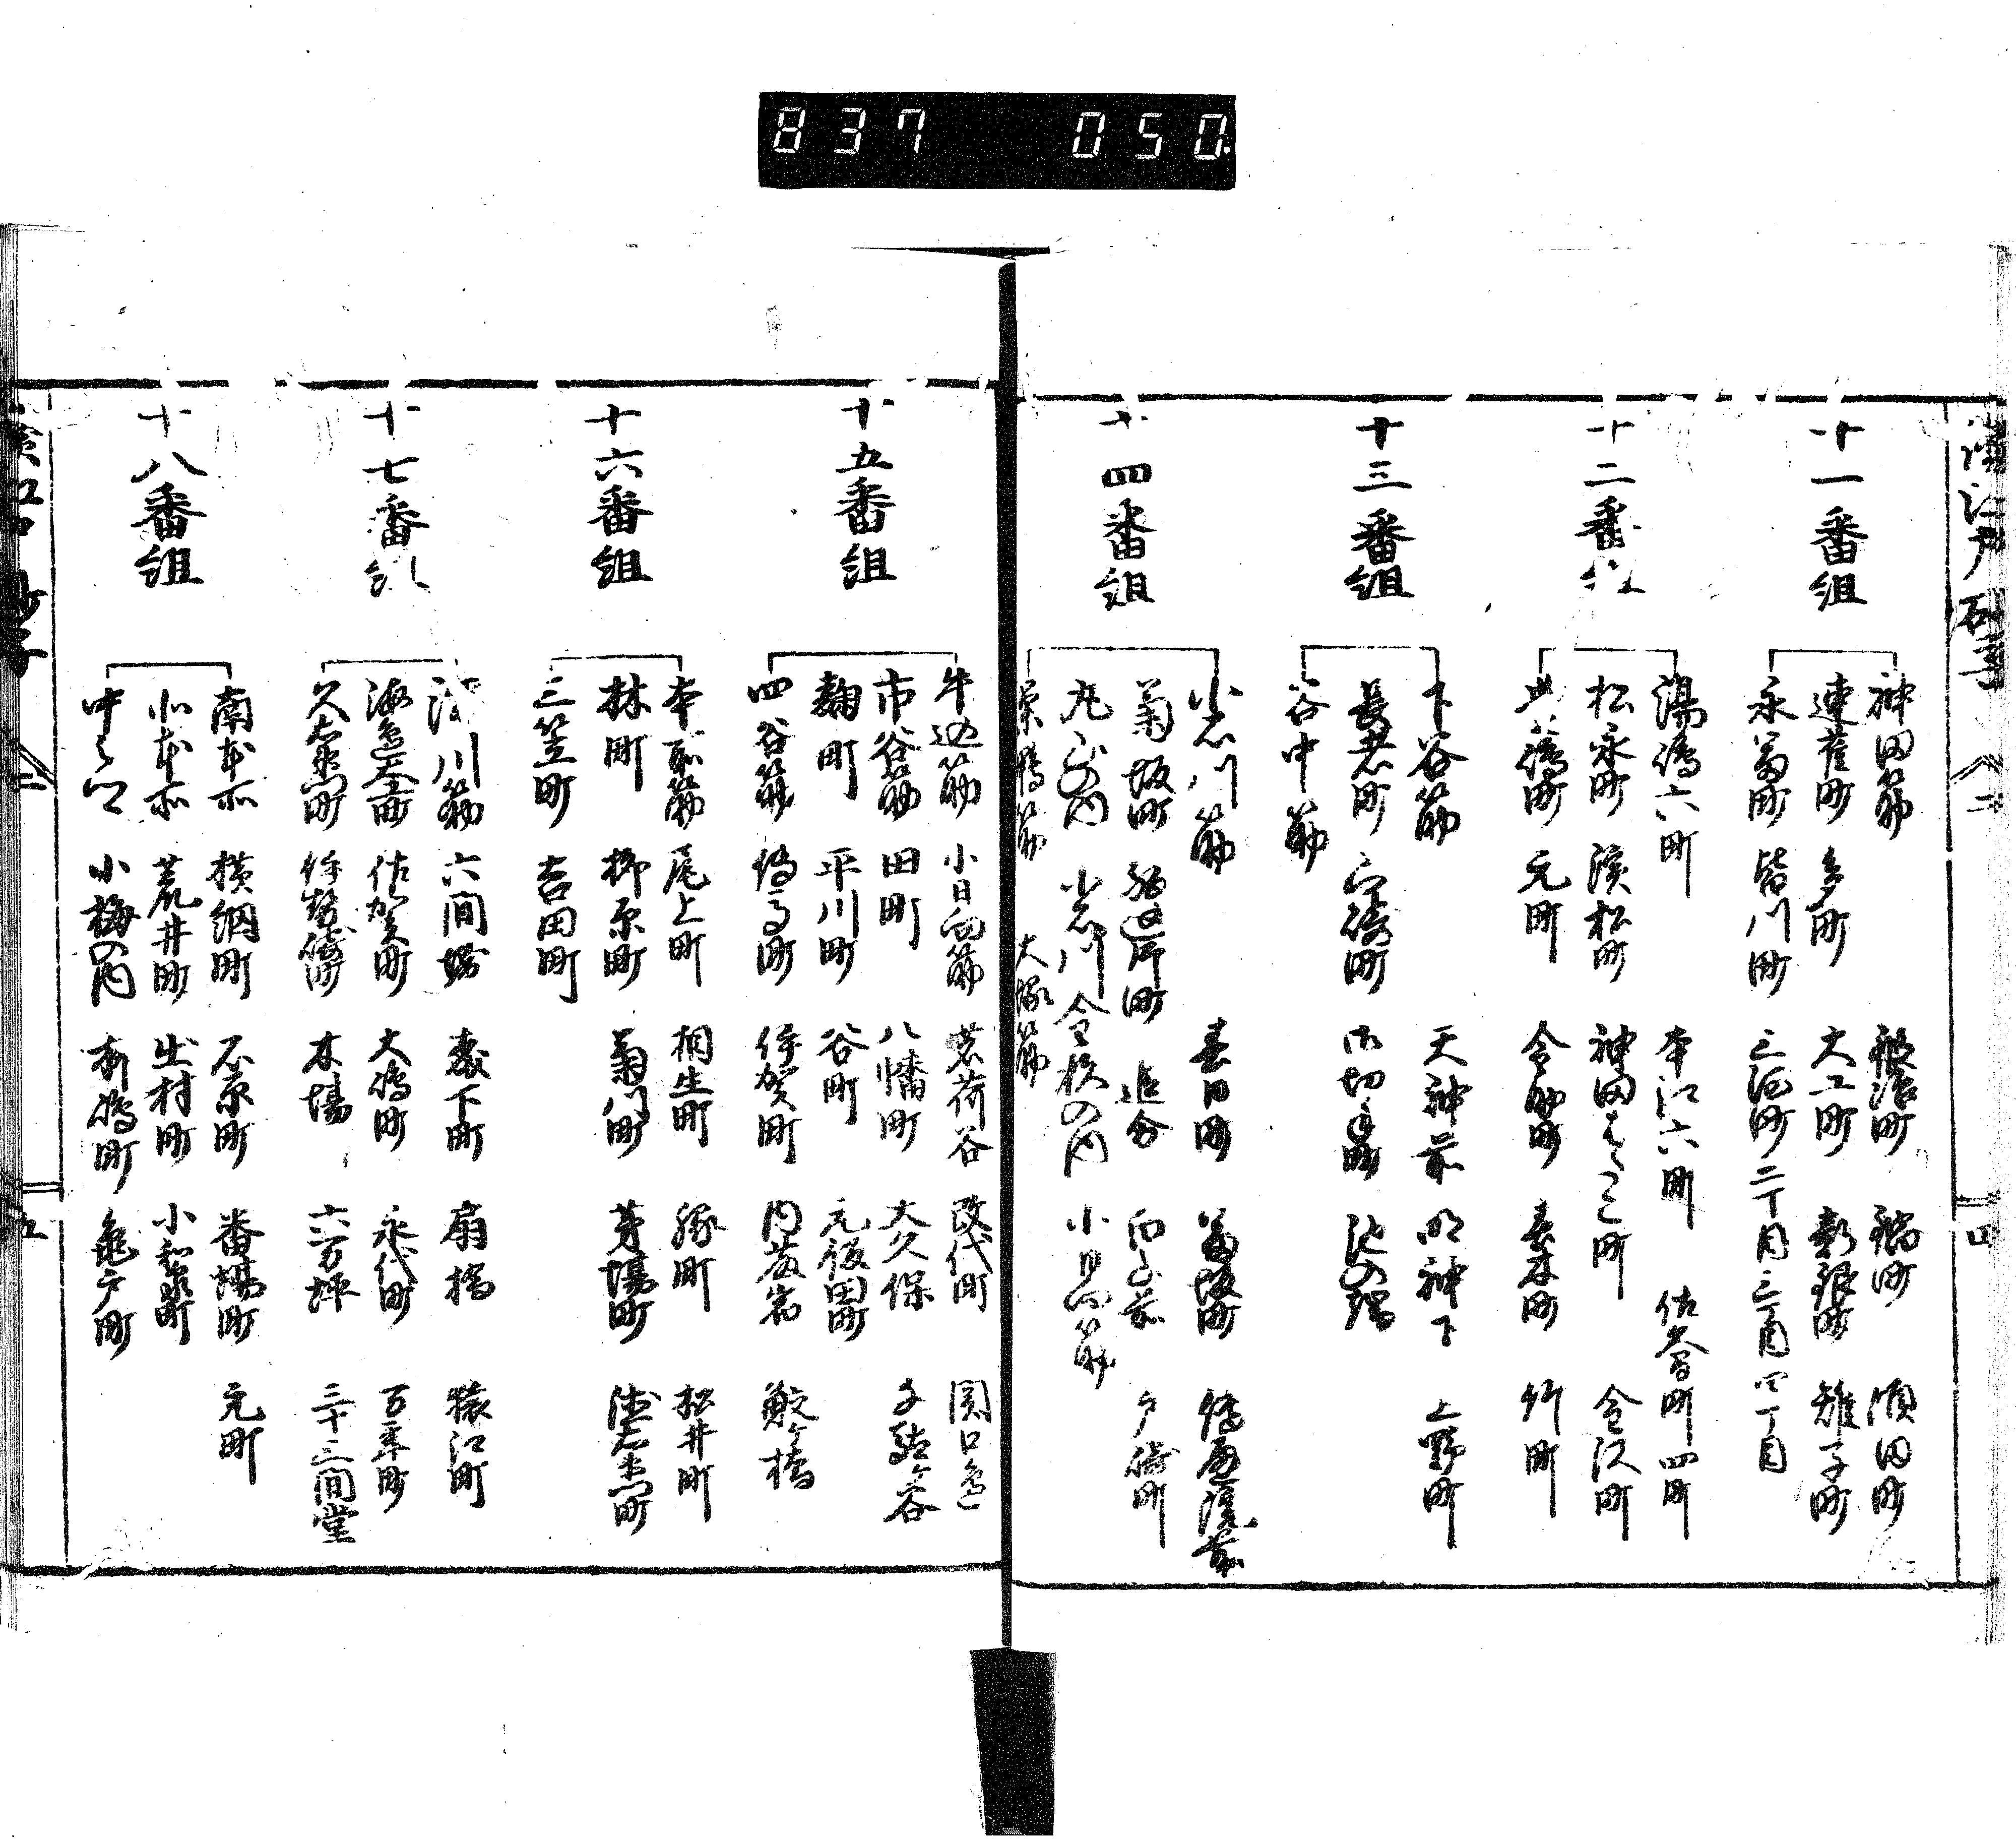 837 050
十一番組
神田筋 鍛冶町 鍋町 須田町
連雀町 多町 大工町 新銀町 雉子町
永富町 皆川町 三河町二丁目三丁目四丁目
十二番組
湯嶋六町 本江六町 佐久間町四町
松永町 濱松町 神田 町 金沢町
元町 金助町 春木町 竹町
十三番組
下谷筋 天神前 明神下 上野町
長者町 御切手町 池の端
谷中筋
十四番組
小石川筋 春日町 富坂町 傳通院前
菊坂町 片町 追分 白山前 戸崎町
丸山の内 小石川金杉の内 小日向筋
巣鴨筋 大塚筋
十五番組
牛込筋 小日向筋 茗荷谷 改代町 関口
市谷筋 田町 八幡町 大久保 千駄ヶ谷
麹町 平川町 谷町 元飯田町
四谷筋 傳馬町 伊賀町 内藤宿 鮫ヶ橋
十六番組
本所筋 尾上町 相生町 緑町 松井町
林町 柳原町 菊川町 茅場町 徳右衛門町
三笠町 吉田町
十七番組
深川筋 六間堀 森下町 扇橋 猿江町
海辺大工町 佐賀町 大嶋町 永代町 万年町
久右衛門町 伊勢崎町 木場 六万坪 三十三間堂
十八番組
南本所 横網町 石原町 番場町 元町
北本所 荒井町 出村町 小和泉町
中之郷 小梅の内 柳嶋町 亀戸町